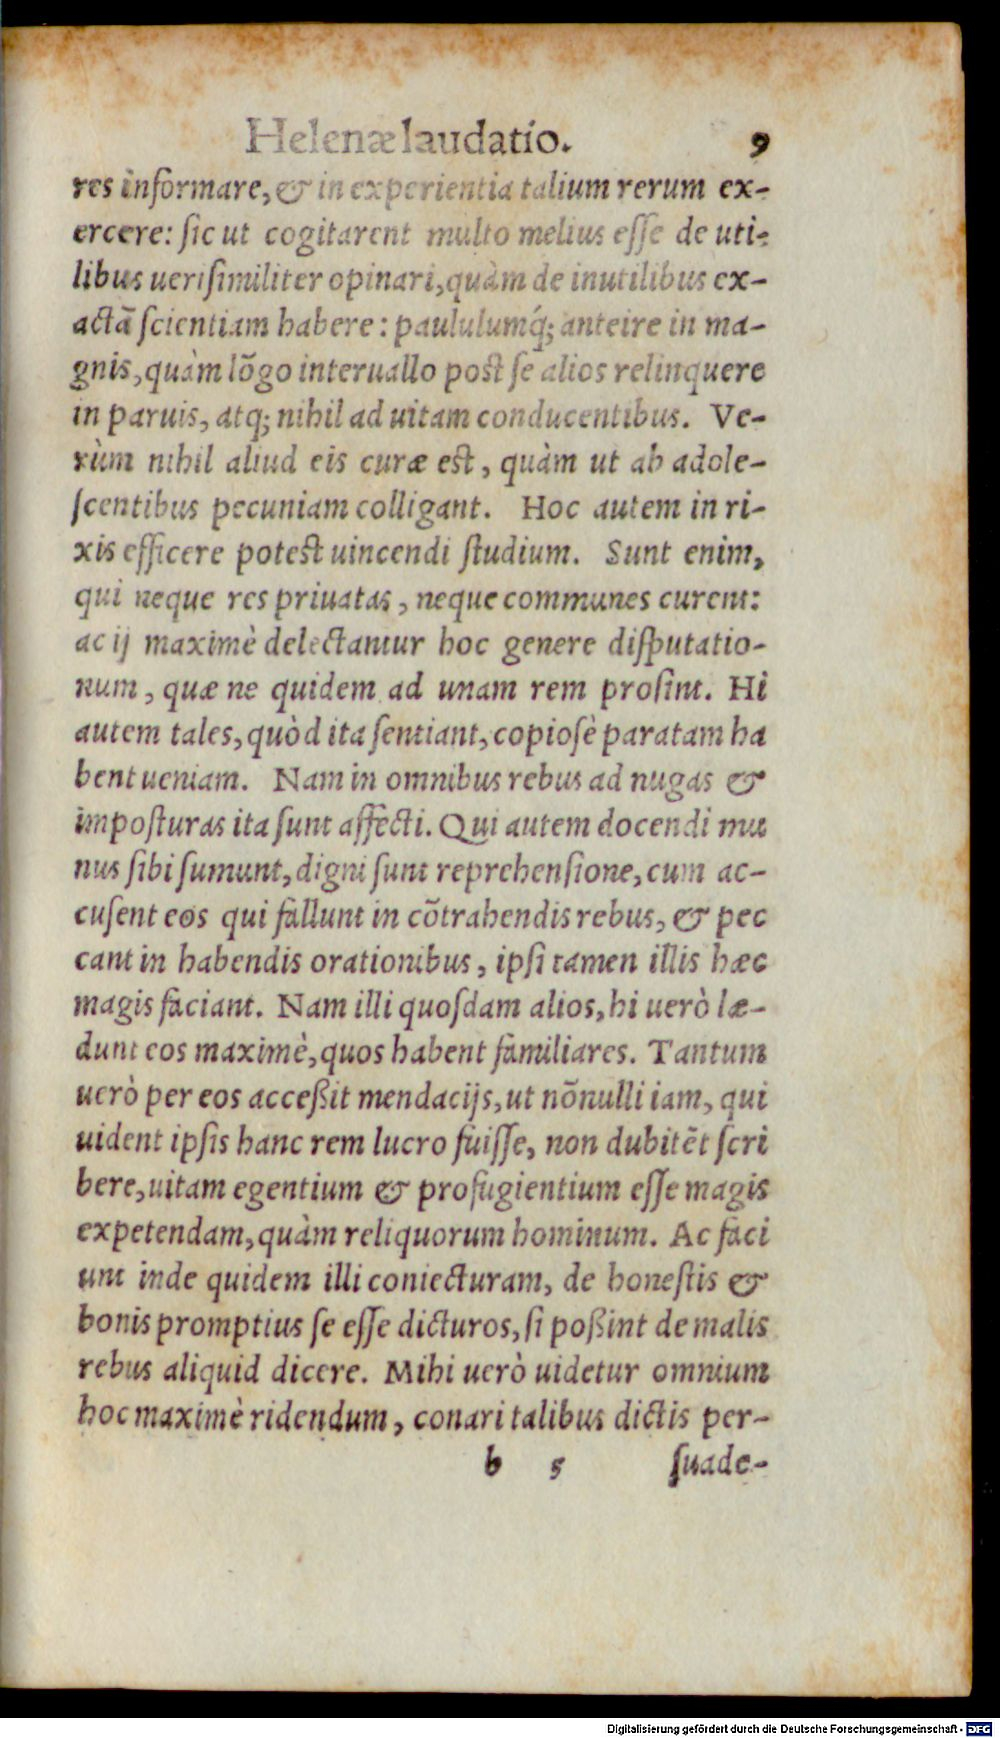 Helenæ laudatio. 9
res informare, & in experientia talium rerum ex-
ercere: sic ut cogitarent multo melius esse de uti-
libus uerisimiliter opinari, quàm de inutilibus ex-
actã scientiam habere: paululumq́; anteire in ma-
gnis, quàm lõgo interuallo post se alios relinquere
in paruis, atq; nihil ad uitam conducentibus. Ve-
rùm nihil aliud eis curæ est, quàm ut ab adole-
scentibus pecuniam colligant. Hoc autem in ri-
xis efficere potest uincendi studium. Sunt enim,
qui neque res priuatas, neque communes curent:
ac ij maximè delectantur hoc genere disputatio-
num, quæ ne quidem ad unam rem prosint. Hi
autem tales, quòd ita sentiant, copiosè paratam ha
bent ueniam. Nam in omnibus rebus ad nugas &
imposturas ita sunt affecti. Qui autem docendi mu
nus sibi sumunt, digni sunt reprehensione, cum ac-
cusent eos qui fallunt in cõtrahendis rebus, & pec
cant in habendis orationibus, ipsi tamen illis hæc
magis faciant. Nam illi quosdam alios, hi uerò læ-
dunt eos maximè, quos habent familiares. Tantum
uerò per eos acceßit mendacijs, ut nõnulli iam, qui
uident ipsis hanc rem lucro fuisse, non dubitẽt scri
bere, uitam egentium & profugientium esse magis
expetendam, quàm reliquorum hominum. Ac faci
unt inde quidem illi coniecturam, de honestis &
bonis promptius se esse dicturos, si poßint de malis
rebus aliquid dicere. Mihi uerò uidetur omnium
hoc maximè ridendum, conari talibus dictis per-
b 5 suade-
Digitalisierung gefördert durch die Deutsche Forschungsgemeinschaft - DFG